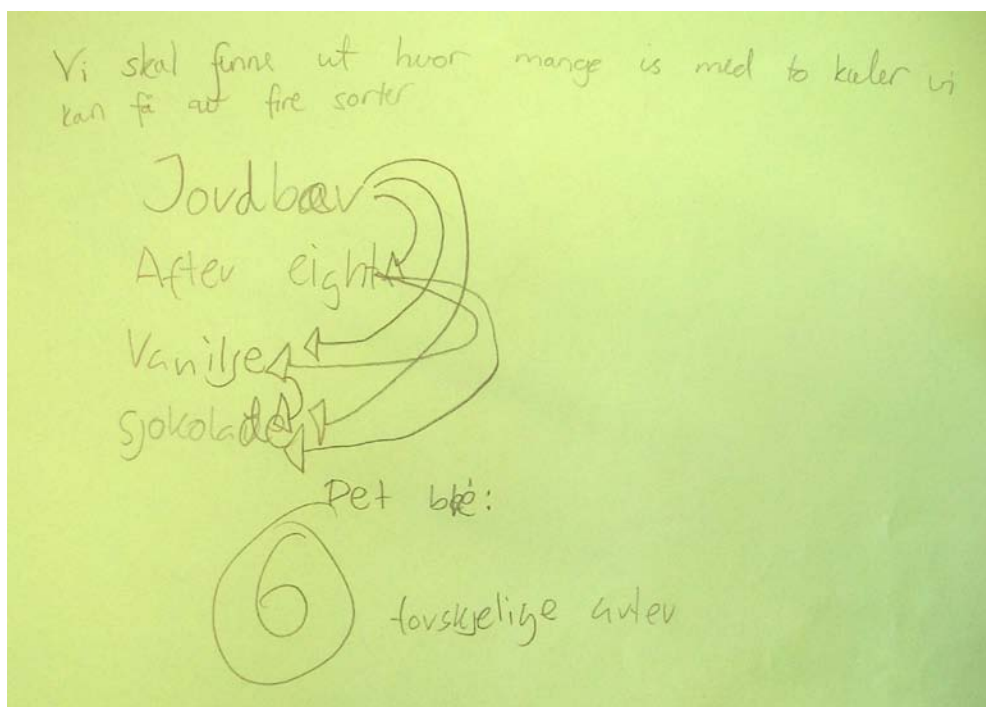 Vi skal finne ut hvor mange is med to kuler vi
kan få av fire sorter
Jordbær
After eight
Vanilje
Sjokolade
Det ble:
6
forskjelige arter